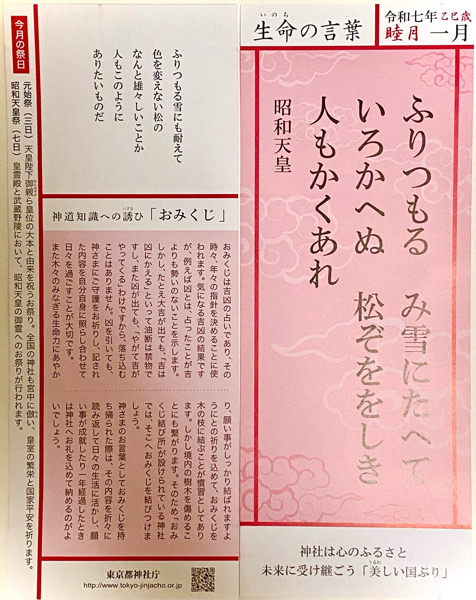 生命の言葉
いのち
令和七年 乙巳歳
睦月 一月
ふりつもる み雪にたへて
いろかへぬ 松ぞををしき
人もかくあれ
昭和天皇
神社は心のふるさと
未来に受け継ごう「美しい国ぶり」
うるわ
ふりつもる雪にも耐えて
色を変えない松の
なんと雄々しいことか
人もこのように
ありたいものだ
神道知識への誘ひ「おみくじ」
いざな
おみくじは吉凶の占いであり、その
時々、年々の指針を決めることに使
われます。気になる吉凶の結果です
が、例えば凶とは、占ったことが吉
よりも勢いのないことを示します。
しかし、たとえ大吉が出ても、「吉は
凶にかえる」といって油断は禁物で
すし、また凶が出ても、「やがて吉が
やってくる」わけですから、落ち込む
ことはありません。凶を引いても、
神さまにご守護をお祈りし、記され
た内容を自分自身に照らし合わせて
日々を過ごすことが大切です。
また木々のみなぎる生命力にあやか
り、願い事がしっかり結ばれますよ
うにとの祈りを込めて、おみくじを
木の枝に結ぶことが慣習としてあり
ます。しかし境内の樹木を傷めるこ
とにも繋がります。そのため「おみ
くじ結び所」が設けられている神社
では、そこへおみくじを結びつけま
しょう。
神さまのお言葉としておみくじを持
ち帰られた際は、その内容を折々に
読み返して日々の生活に活かし、願
い事が成就したり一年経過したとき
は神社へお礼を込めて納めるのがよ
いでしょう。
東京都神社庁
http://www.tokyo-jinjacho.or.jp
今月の祭日
元始祭（三日）天皇陛下御親ら皇位の大本と由来を祝うお祭り。全国の神社も宮中に倣い、皇室の繁栄と国家平安を祈ります。
昭和天皇祭（七日）皇霊殿と武蔵野陵において、昭和天皇の御霊へのお祭りが行われます。